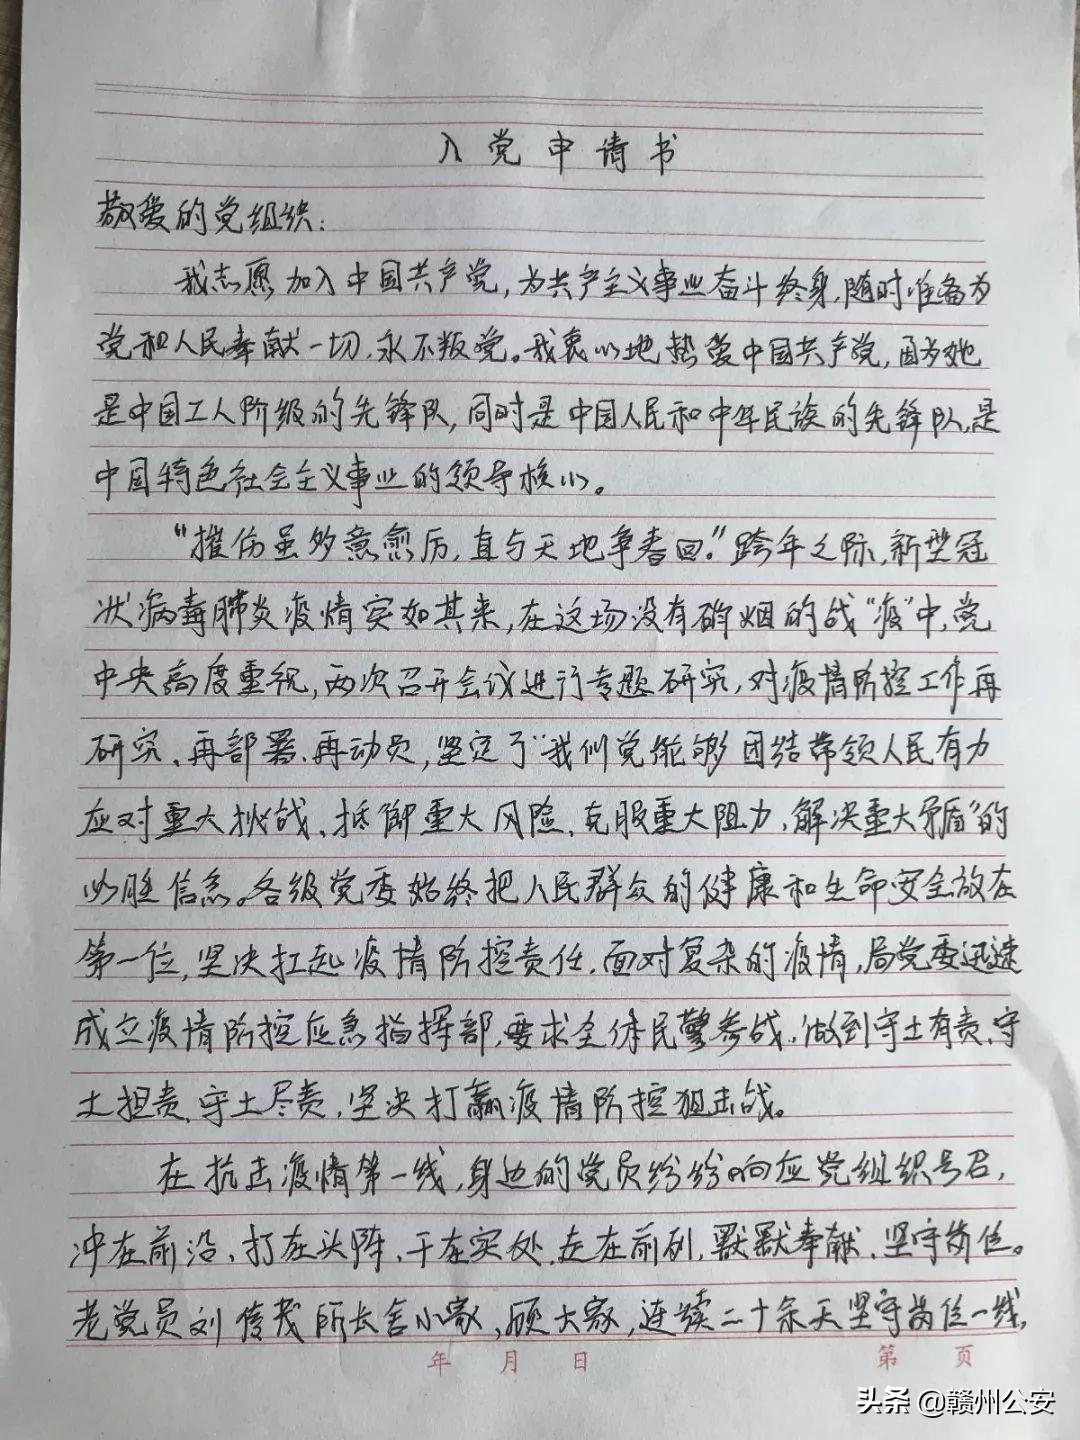 入党申请书
敬爱的党组织:
我志愿加入中国共产党,为共产主义事业奋斗终身,随时准备为
党和人民奉献一切,永不叛党。我衷心地热爱中国共产党,因为她
是中国工人阶级的先锋队,同时是中国人民和中华民族的先锋队,是
中国特色社会主义事业的领导核心。
“摧伤虽多意愈厉,直与天地争春回。”跨年之际,新型冠
状病毒肺炎疫情突如其来,在这场没有硝烟的战“疫”中,党
中央高度重视,两次召开会议进行专题研究,对疫情防控工作再
研究、再部署、再动员,坚定了“我们党能够团结带领人民有力
应对重大挑战、抵御重大风险、克服重大阻力、解决重大矛盾”的
必胜信念。各级党委始终把人民群众的健康和生命安全放在
第一位,坚决扛起疫情防控责任。面对复杂的疫情,局党委迅速
成立疫情防控应急指挥部,要求全体民警参战,做到守土有责、守
土担责、守土尽责,坚决打赢疫情防控狙击战。
在抗击疫情第一线,身边的党员纷纷响应党组织号召,
冲在前沿、打在头阵、干在实处、走在前列,默默奉献、坚守岗位。
老党员刘传茂所长舍小家,顾大家,连续二十余天坚守岗位一线,
年 月 日 第 页
头条 @赣州公安